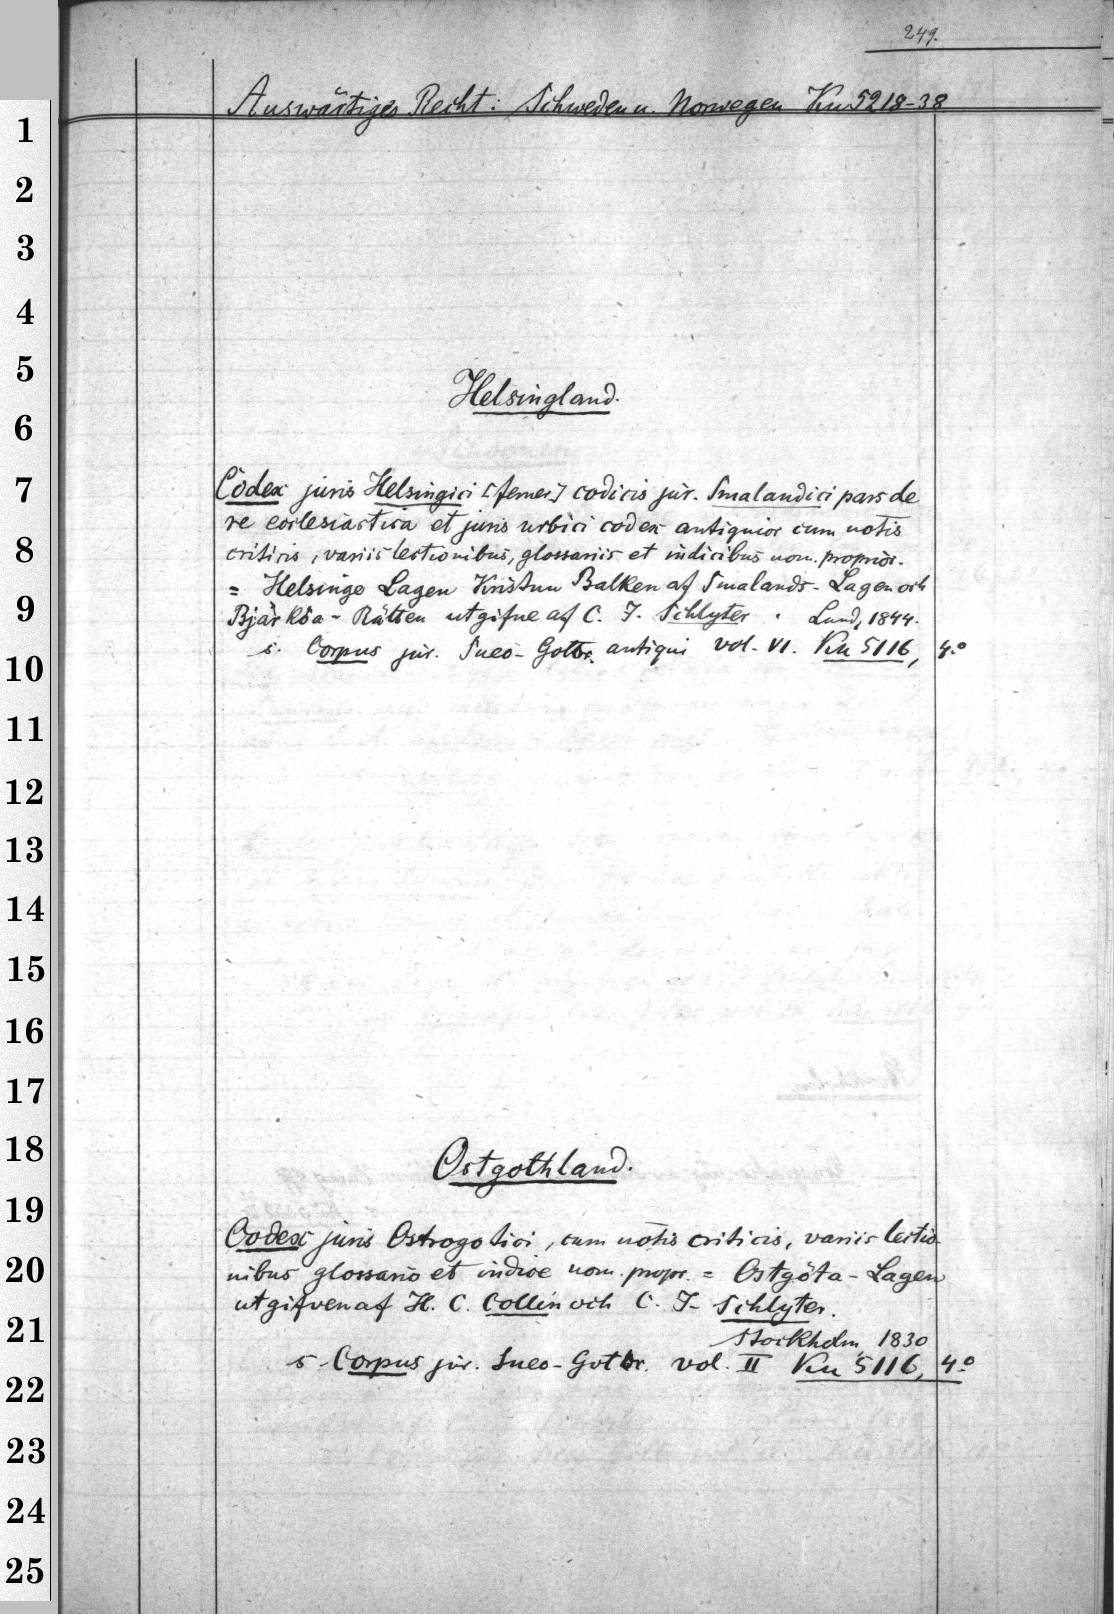 249.
Auswärtiges Recht: Schweden u. Norwegen Ku 5218-38
1
2
3
4
5
Helsingland.
6
7
Codex juris Helsingici [ferner] codicis jur. Smalandici pars de
re ecclesiastica et juris urbici codex antiquior cum notis
8
criticis, variis lectionibus, glossariis et indicibus nom. proprior.
= Helsinge Lagen Kristnu Balken af Smalands-Lagen och
9
Bjärköa-Rätten utgifne af C. J. Schlyter. Lund, 1844.
s. Corpus jur. Sueo-Gotor. antiqui vol. VI. Ku 5116, 4.°
10
11
12
13
14
15
16
17
18
Ostgothland.
19
Codex juris Ostrogotici, cum notis criticis, variis lectio-
20
nibus glossario et indice nom. propr. = Ostgöta-Lagen
utgifven af H. C. Collin och C. J. Schlyter.
21
Stockholm, 1830
s. Corpus jur. Sueo-Gotor. vol. II Ku 5116, 4.°
22
23
24
25